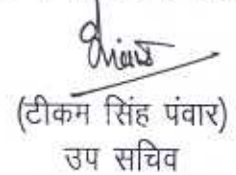 (टीकम सिंह पंवार)
उप सचिव